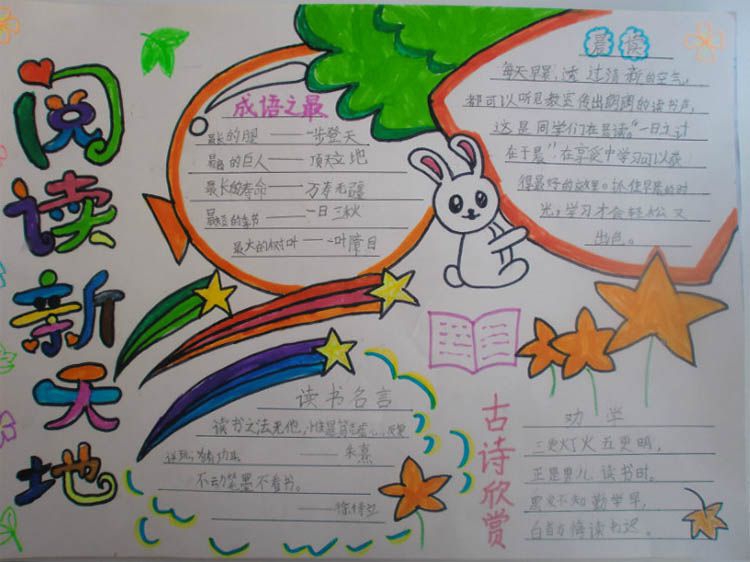 阅读新天地
成语之最
最长的腿——一步登天
最高的巨人——顶天立地
最长的寿命——万寿无疆
最短的季节——一日三秋
最大的树叶——一叶障目
晨读
每天早晨,透过清新的空气,
都可以听见教室传出朗朗的读书声,
这是同学们在晨读。"一日之计
在于晨",在享受中学习可以获
得最好的效果。抓住早晨的时
光,学习才会轻松又
出色。
读书名言
读书之法无他,
——朱熹
不动笔墨不看书。
——徐特立
古诗欣赏
劝学
三更灯火五更明,
正是男儿读书时。
黑发不知勤学早,
白首方悔读书迟。